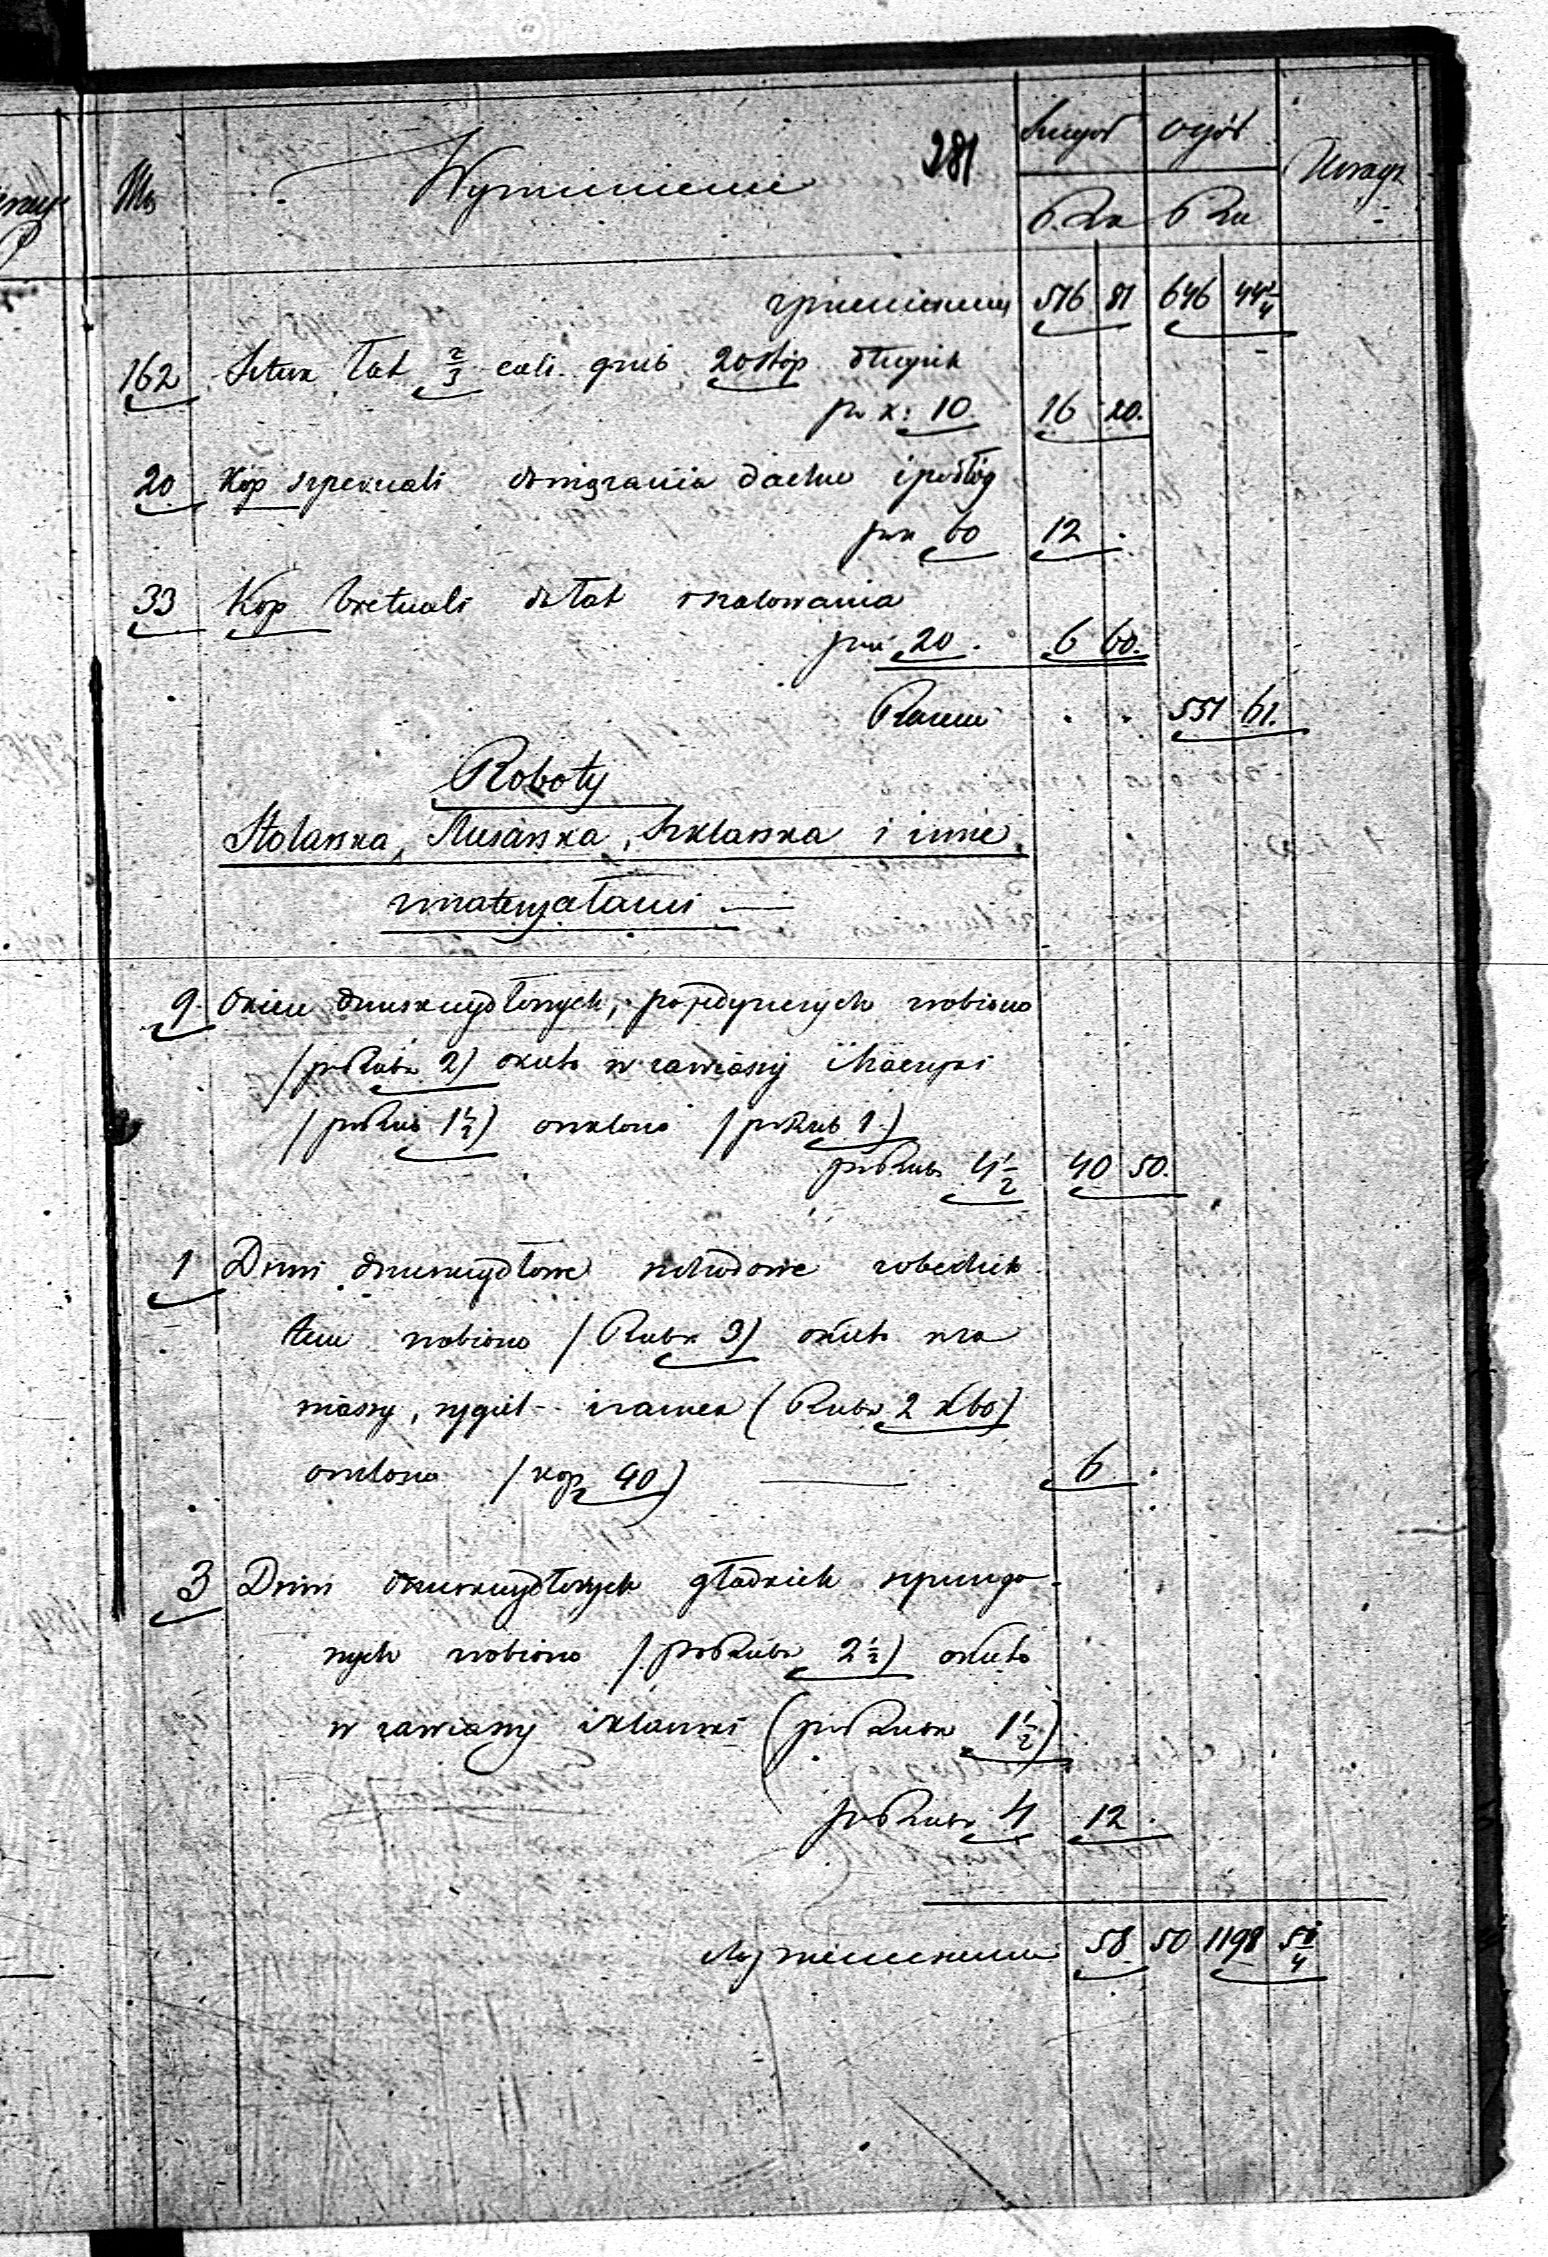 281
№ Wymienienie Szczegół ogół Uwagi
R. Ko R Ko
z przeniesienia 516 81 646 44 2/4
162 Sztuk łat 2/3 cali grub. 20 stóp długich
po k: 10. 16 20.
20 Kop szpernali do wiązania dachu i podłóg
po k 60 12 .
33 Kop bretnali do łat i szalowania
po k 20. 6 60.
Razem . . 551 61.
Roboty
Stolarska, Ślusarska, Szklarska i inne,
z materyałami —
9. Okien dwuskrzydłowych, pojedynczych zrobiono
/po Rubr 2) okuto w zawiasy i haczyki
/po Rub 1½) oszklono /po Rub 1.)
po Rubr 4½ 40 50.
1 Drzwi dwuskrzydłowe
zrobiono / Rubr 3) okuto w za
wiasy, rygiel i zamek ( Rubr 2 k 60)
oszklono / kop 40) — 6 .
3 Drzwi dwuskrzydłowych gładkich szpungo
wych zrobiono /. po Rubr 2½) okuto
w zawiasy i klamki ( po Rubr 1½).
po Rubr 4 12 .
Do przeniesienia 58 50 1198 5 2/4